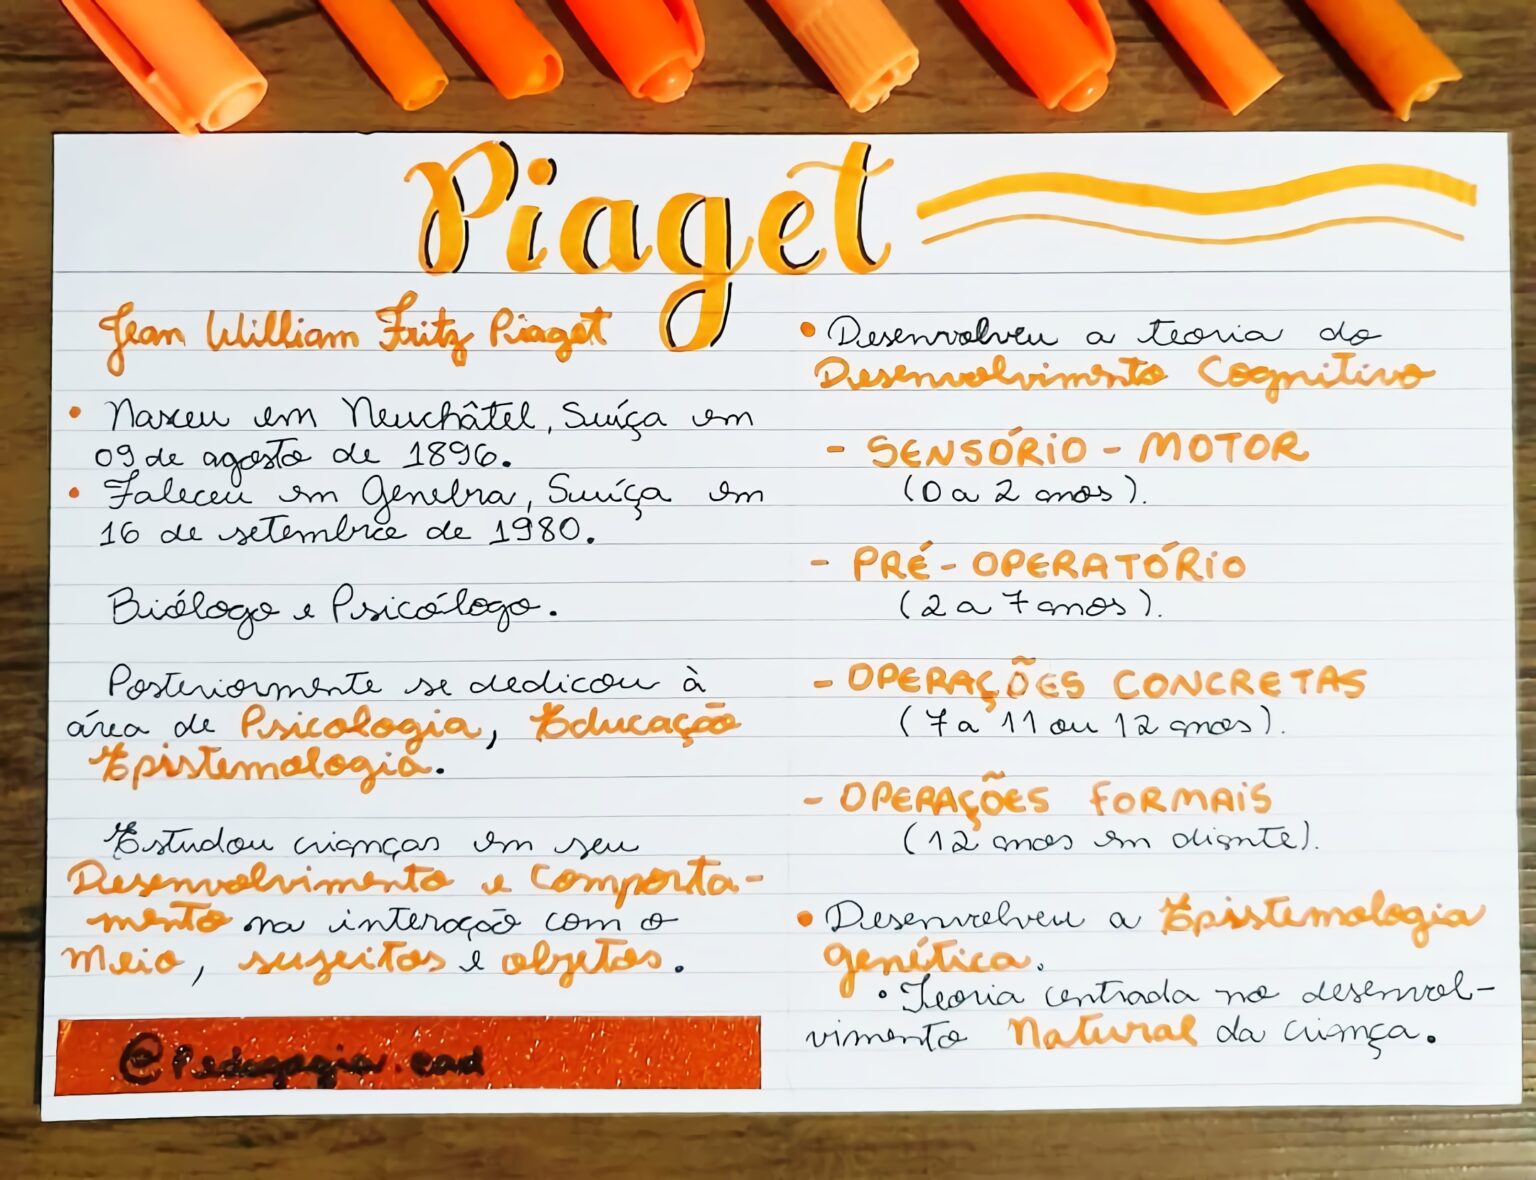 Piaget
Jean William Fritz Piaget
• Nasceu em Neuchâtel, Suíça em
09 de agosto de 1896.
• Faleceu em Genebra, Suíça em
16 de setembro de 1980.
Biólogo e Psicólogo.
Posteriormente se dedicou à
área de Psicologia, Educação
Epistemologia.
Estudou crianças em seu
Desenvolvimento e comporta-
mento na interação com o
Meio, sujeitos e objetos.
@Pedagogia.ead
• Desenvolveu a teoria do
Desenvolvimento Cognitivo
- SENSÓRIO - MOTOR
(0 a 2 anos).
- PRÉ - OPERATÓRIO
(2 a 7 anos).
- OPERAÇÕES CONCRETAS
(7 a 11 ou 12 anos).
- OPERAÇÕES FORMAIS
(12 anos em diante).
• Desenvolveu a Epistemologia
genética.
• Teoria centrada no desenvol-
vimento Natural da criança.